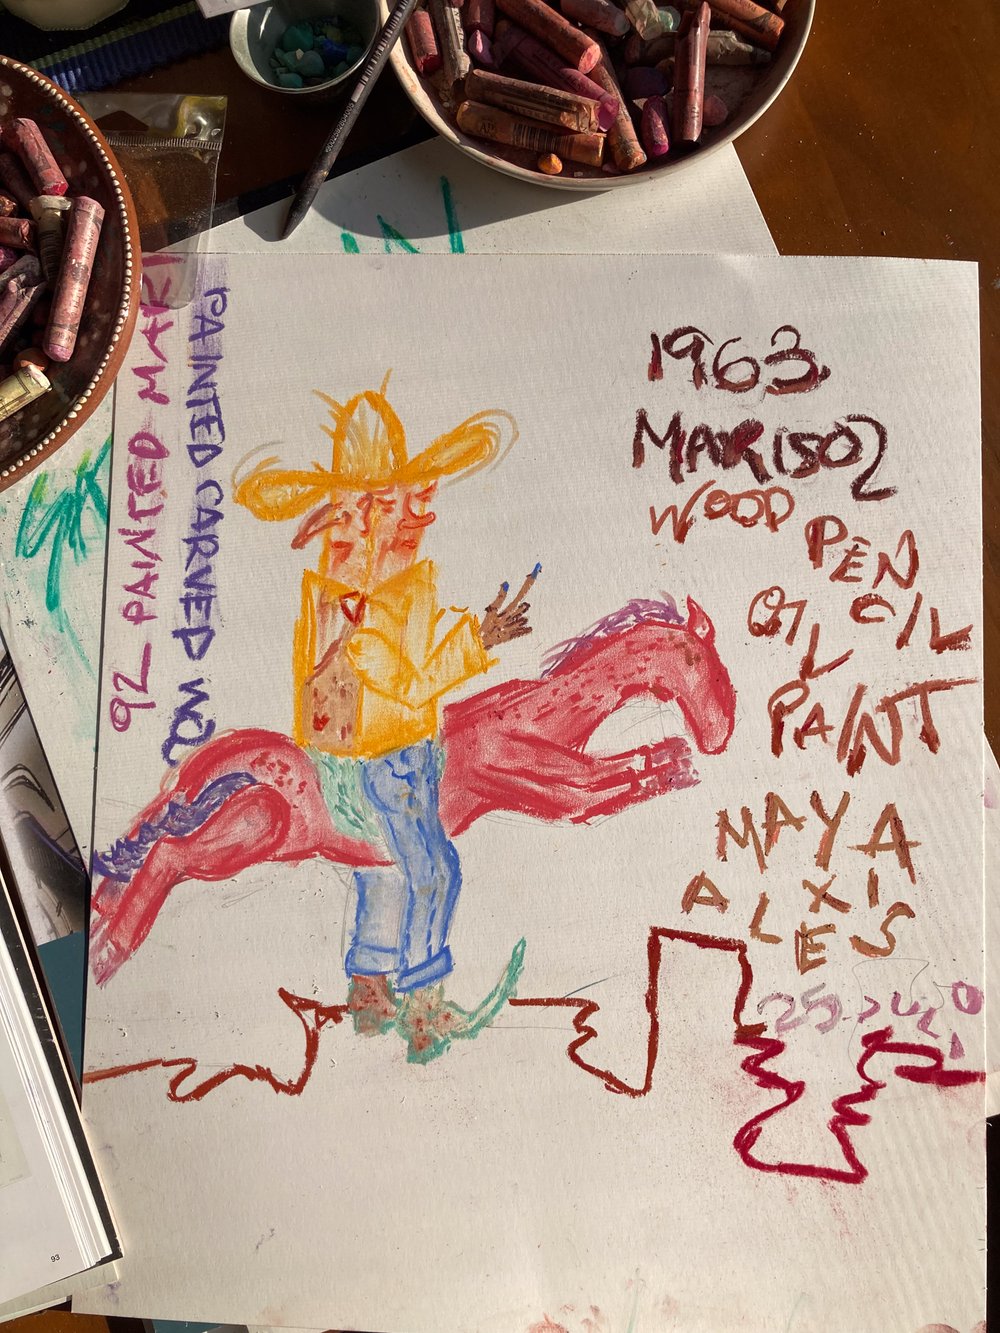 1963
MARISOL
WOOD
PENCIL
OIL
PAINT
MAYA
ALEXIS
PAINTED CARVED WO
92 PAINTED MA
93